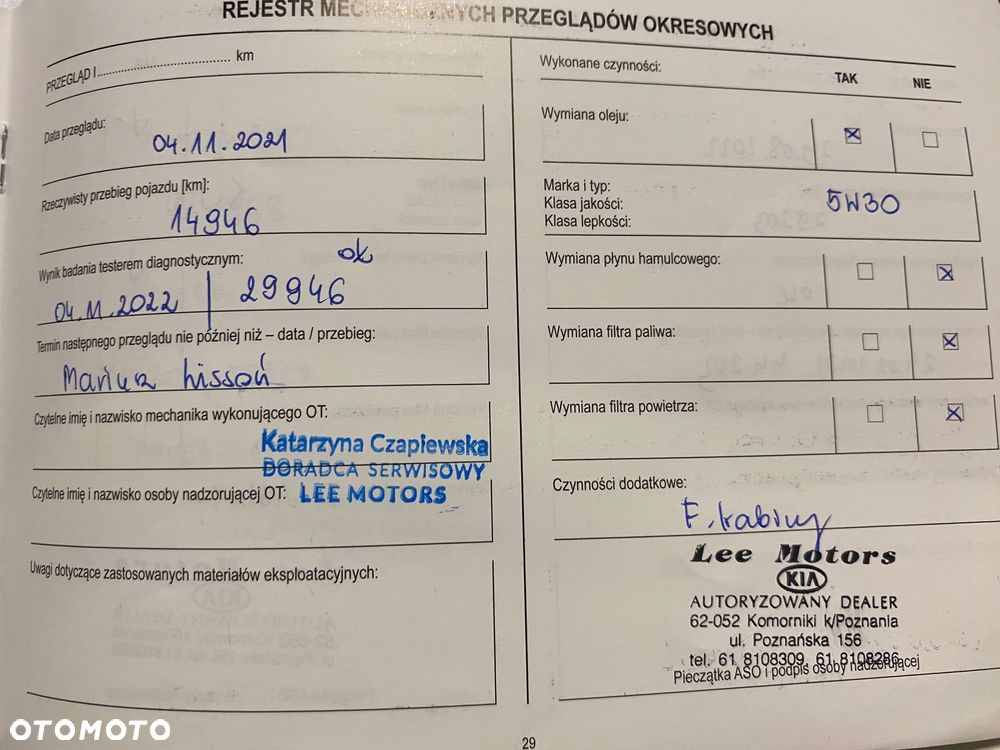 REJESTR MECHANICZNYCH PRZEGLĄDÓW OKRESOWYCH
PRZEGLĄD I.................................... km
Data przeglądu:
04.11.2021
Rzeczywisty przebieg pojazdu [km]:
14946
Wynik badania testerem diagnostycznym:
ok
04.11.2022 | 29946
Termin następnego przeglądu nie później niż – data / przebieg:
Mariusz Lissoń
Czytelne imię i nazwisko mechanika wykonującego OT:
Katarzyna Czaplewska
DORADCA SERWISOWY
Czytelne imię i nazwisko osoby nadzorującej OT:
LEE MOTORS
Uwagi dotyczące zastosowanych materiałów eksploatacyjnych:
Wykonane czynności:
TAK NIE
Wymiana oleju:
Marka i typ:
Klasa jakości:
Klasa lepkości:
5W30
Wymiana płynu hamulcowego:
Wymiana filtra paliwa:
Wymiana filtra powietrza:
Czynności dodatkowe:
F. kabiny
Lee Motors
KIA
AUTORYZOWANY DEALER
62-052 Komorniki k/Poznania
ul. Poznańska 156
tel. 61 8108309, 61 8108286
Pieczątka ASO i podpis osoby nadzorującej
29
OTOMOTO